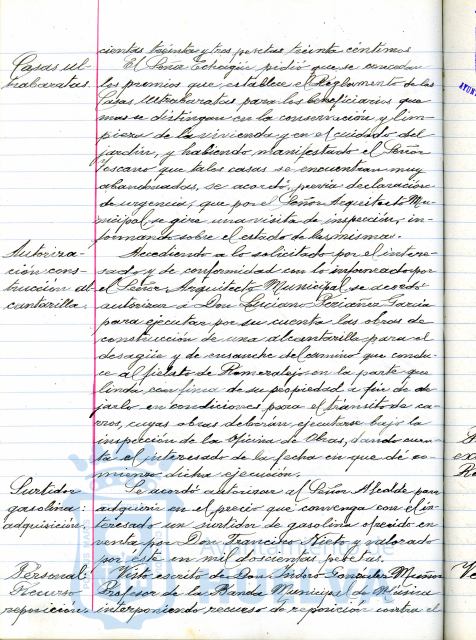 cientas treinta y tres pesetas treinta céntimos
Casas ul-
trabaratas.
El Señor Echagüe pidió que se concedan
los premios que establece el Reglamento de las
Casas Ultrabaratas para los beneficiarios que
mas se distingan en la conservación y lim-
pieza de la vivienda y en el cuidado del
jardín, y habiendo manifestado el Señor
Toscano que tales casas se encuentran muy
abandonadas, se acordó, previa declaración
de urgencia, que por el Señor Arquitecto Mu-
nicipal se gire una visita de inspección, in-
formando sobre el estado de las mismas.
Autoriza-
ción cons-
trucción al-
cantarilla
Accediendo a lo solicitado por el intere-
sado y de conformidad con lo informado por
el Señor Arquitecto Municipal se acordó
autorizar a Don Luciano García
para ejecutar por su cuenta las obras de
construcción de una alcantarilla para el
desagüe y de ensanche del camino que condu-
ce al fielato de Romeralejo en la parte que
linda con finca de su propiedad a fin de de-
jarlo en condiciones para el tránsito de ca-
rros, cuyas obras deberán ejecutarse bajo la
inspección de la Oficina de Obras, dando cuen-
ta el interesado de la fecha en que dé co-
mienzo dicha ejecución.
Surtidor
gasolina
adquisición.
Se acordó autorizar al Señor Alcalde para
adquirir en el precio que convenga con el in-
teresado un surtidor de gasolina ofrecido en
venta por Don Francisco Nieto y valorado
por este en mil doscientas pesetas.
Personal
Recurso
reposición
Visto escrito de Don Isidro González Muñoz
Profesor de la Banda Municipal de Música
interponiendo recurso de reposición contra el